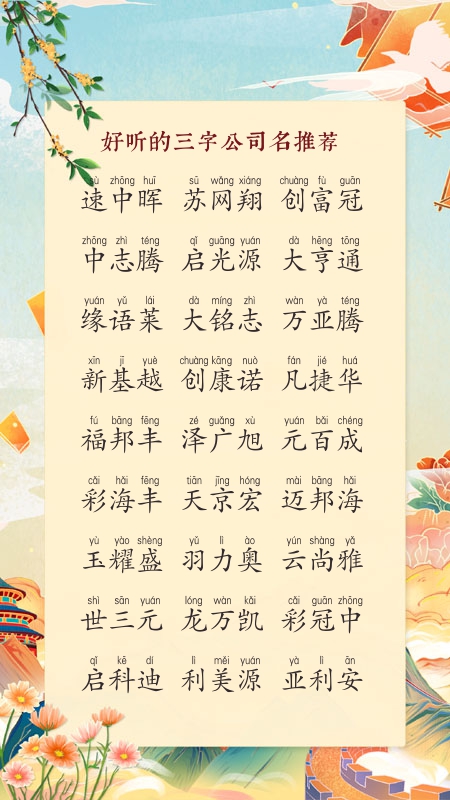 好听的三字公司名推荐
sù zhōng huī sū wǎng xiáng chuàng fù guān
速中晖 苏网翔 创富冠
zhōng zhì téng qǐ guāng yuán dà hēng tōng
中志腾 启光源 大亨通
yuán yǔ lái dà míng zhì wàn yà téng
缘语莱 大铭志 万亚腾
xīn jī yuè chuàng kāng nuò fán jié huá
新基越 创康诺 凡捷华
fú bāng fēng zé guǎng xù yuán bǎi chéng
福邦丰 泽广旭 元百成
cǎi hǎi fēng tiān jīng hóng mài bāng hǎi
彩海丰 天京宏 迈邦海
yù yào shèng yǔ lì ào yún shàng yǎ
玉耀盛 羽力奥 云尚雅
shì sān yuán lóng wàn kǎi cǎi guān zhōng
世三元 龙万凯 彩冠中
qǐ kē dí lì měi yuán yà lì ān
启科迪 利美源 亚利安